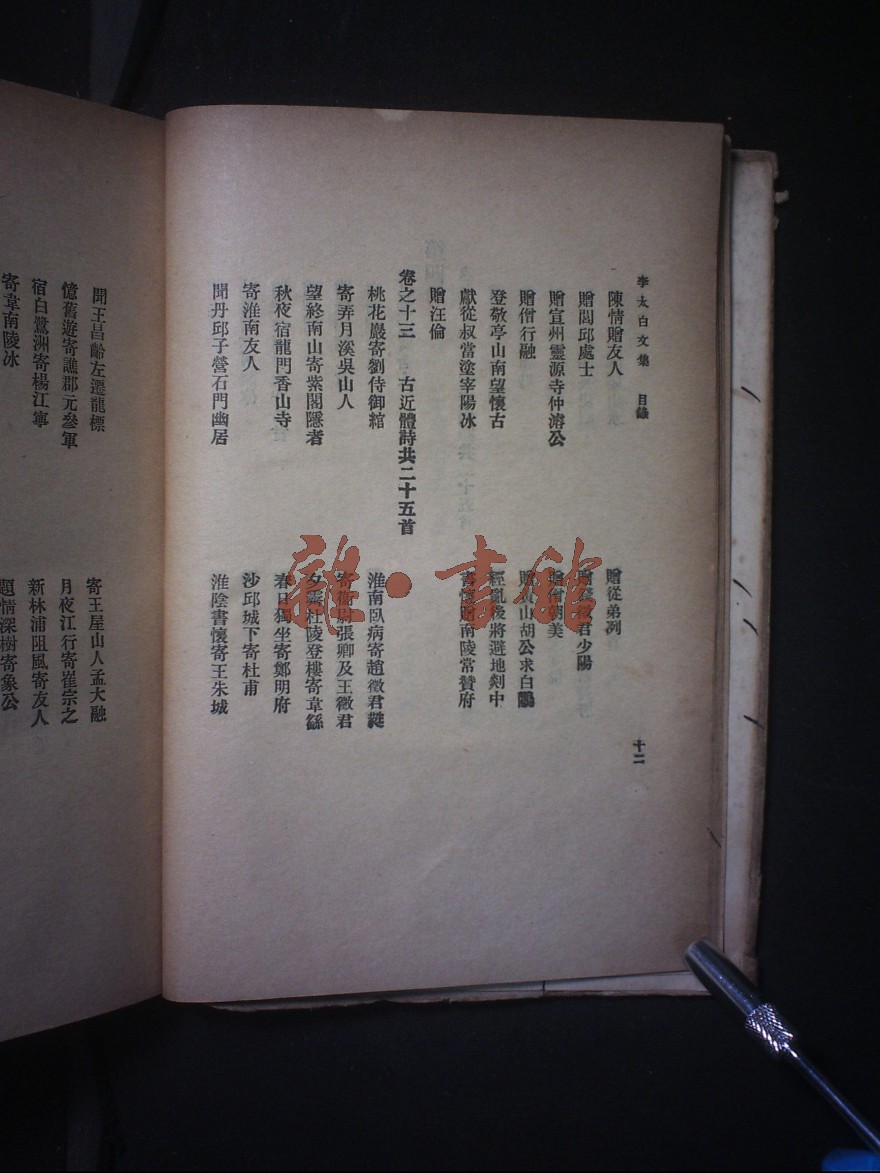 李太白文集　目錄　十二
陳情贈友人　贈從弟冽
贈閭邱處士　贈君少陽
贈宣州靈源寺仲濬公　贈僧朝美
贈僧行融　贈山胡公求白鷴
登敬亭山南望懷古　經亂後將避地剡中
獻從叔當塗宰陽冰　書懷贈南陵常贊府
贈汪倫
卷之十三　古近體詩共二十五首
桃花巖寄劉侍御綰　淮南臥病寄趙徵君蕤
寄弄月溪吳山人　寄衛尉張卿及王徵君
望終南山寄紫閣隱者　夕霽杜陵登樓寄韋繇
秋夜宿龍門香山寺　春日獨坐寄鄭明府
寄淮南友人　沙邱城下寄杜甫
聞丹邱子營石門幽居　淮陰書懷寄王朱城
聞王昌齡左遷龍標　寄王屋山人孟大融
憶舊遊寄譙郡元參軍　月夜江行寄崔宗之
宿白鷺洲寄楊江寧　新林浦阻風寄友人
寄韋南陵冰　題情深樹寄象公
雜·書館